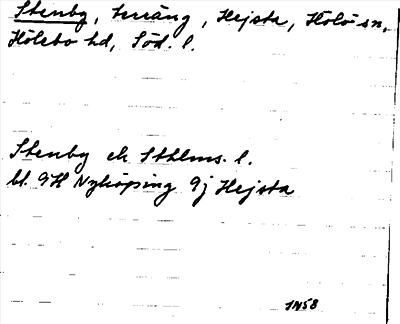 Stenby, terräng, Hejsta, Hölö sn,
Hölebo hd, Söd. l.
Stenby ek Sthlms. l.
bl. 9H Nyköping 9j Hejsta
1N58